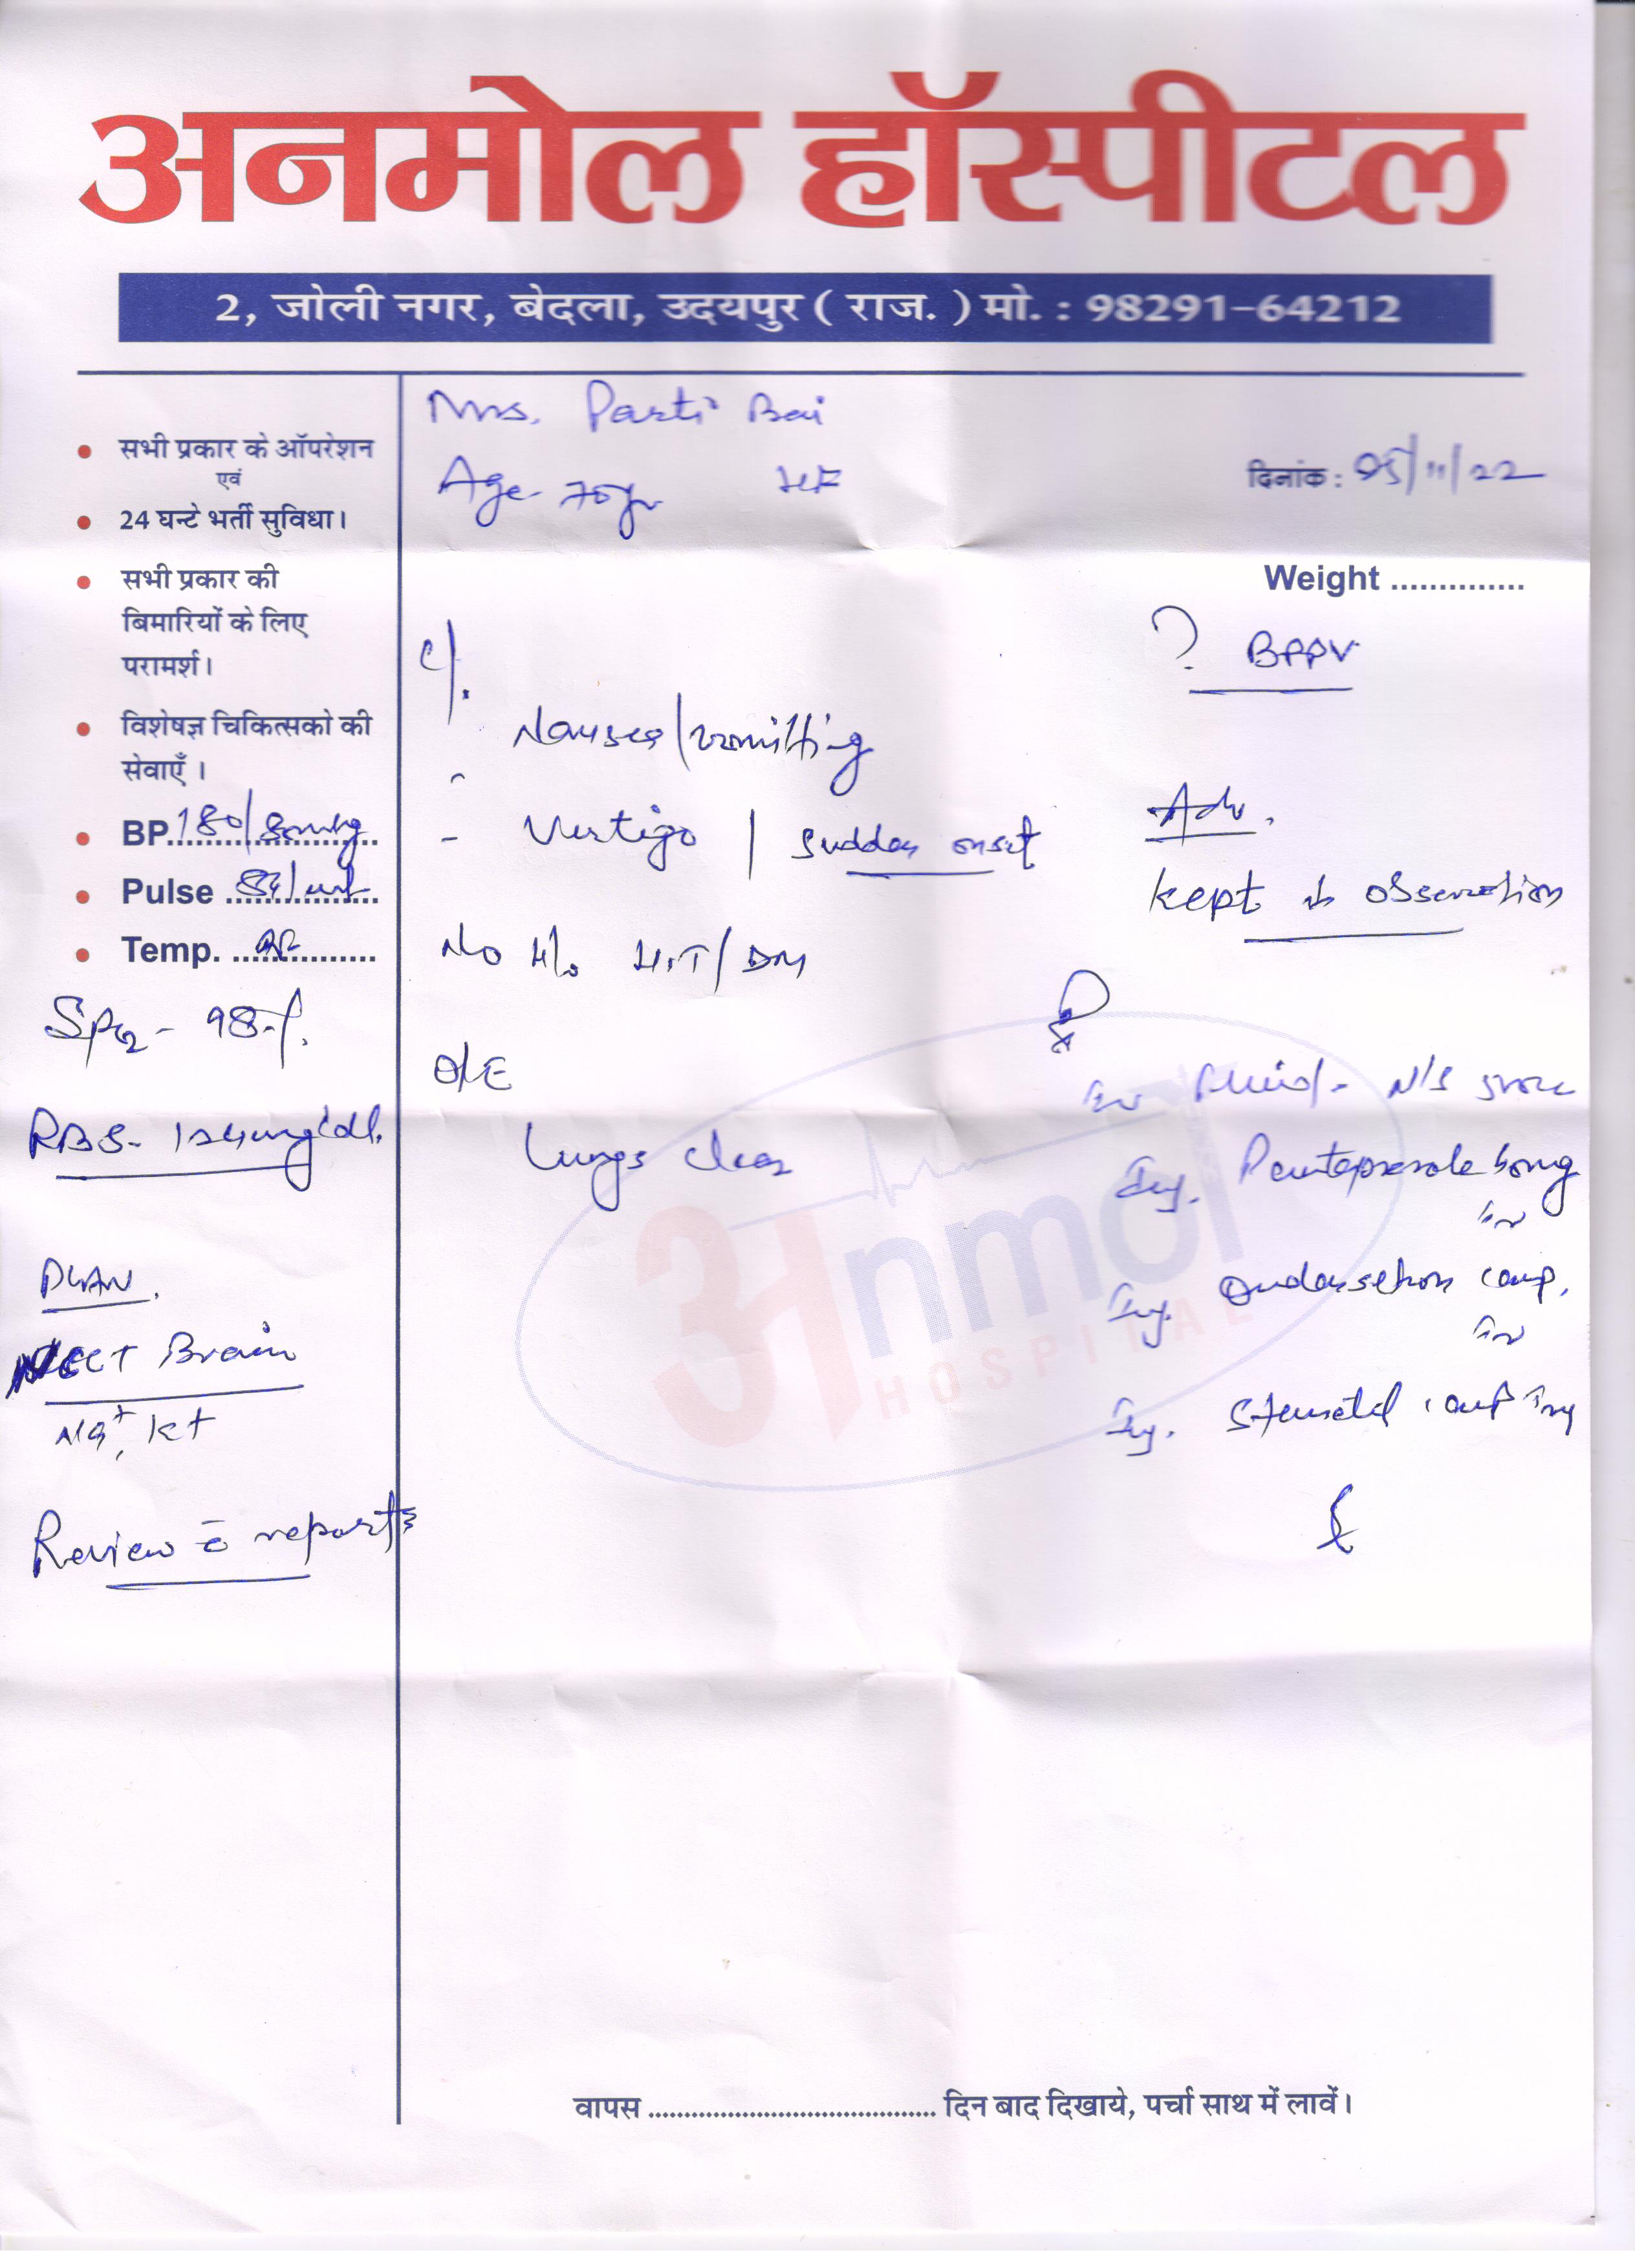 अनमोल हॉस्पीटल
2, जोली नगर, बेदला, उदयपुर ( राज. ) मो. : 98291-64212
Mrs. Parti Bai
Age- 70yr
दिनांक : 05/11/22
Weight ..............
• सभी प्रकार के ऑपरेशन
एवं
• 24 घन्टे भर्ती सुविधा।
• सभी प्रकार की
बिमारियों के लिए
परामर्श।
• विशेषज्ञ चिकित्सको की
सेवाएँ ।
• BP 180/80mmhg
• Pulse 84/mt
• Temp.
SPO2 - 98%.
RBS- 124mg/dl.
PLAN.
NCCT Brain
Na+, K+
Review c̄ reports
C/o
- Nausea/vomitting
- Vertigo / sudden onset
No H/o H.T/DM
O/E
Lungs clear
? BPPV
Adv.
kept in observation
Rx
Iv fluid- N/S 500cc
Inj. Pantoprazole 40mg
Iv
Inj. Ondansetron 1amp.
Iv
Inj. Stemetil 1amp
अnmol
HOSPITAL
वापस ........................................ दिन बाद दिखाये, पर्चा साथ में लावें।